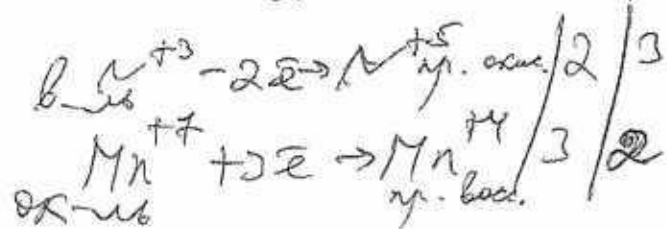 в-ль N⁺³ - 2ē → N⁺⁵ пр. окис. / 2 / 3
ок-ль Mn⁺⁷ + 3ē → Mn⁺⁴ пр. вос. / 3 / 2